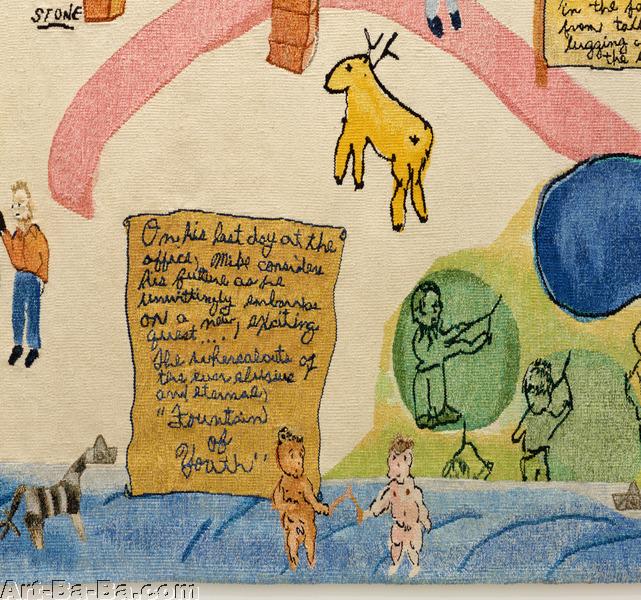 STONE
in the fo
from tal
lugging
"the
On his last day at the
office, Mike considers
his future as he
unwittingly embarks
on a new, exciting
quest...,
the whereabouts of
the ever elusive
and eternal,
"Fountain
of
Youth"
Art-Ba-Ba.com